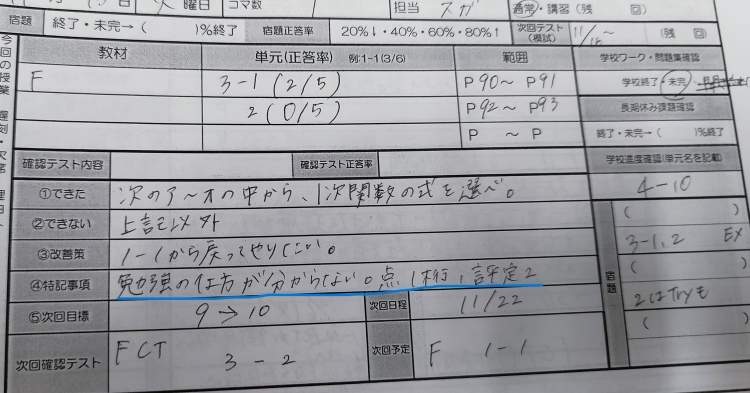 曜日 コマ数 担当 スガ 通常・講習(残 回)
宿題 終了・未完→( )%終了 宿題正答率 20%↓・40%・60%・80%↑ 次回テスト(模試) 11/ (残 回)
教材 単元(正答率) 例:1-1(3/6) 範囲 学校ワーク・問題集確認
F 3-1 (2/5) P 90〜 P 91 学校終了・未完・
2 (0/5) P 92〜 P 93 長期休み課題確認
P 〜 P 終了・未完→( )%終了
確認テスト内容 確認テスト正答率 学校進度確認(単元名を記載)
①できた 次のア〜オの中から、1次関数の式を選べ。 4-10
②できない 上記以外 ( )
③改善策 1-1から戻ってやりたい。 宿題 3-1,2 EX
④特記事項 勉強の仕方が分からない。点1桁,評定2 ( )
⑤次回目標 9→10 次回日程 11/22 2はTryも
次回確認テスト FCT 3-2 次回予定 F 1-1 ( )